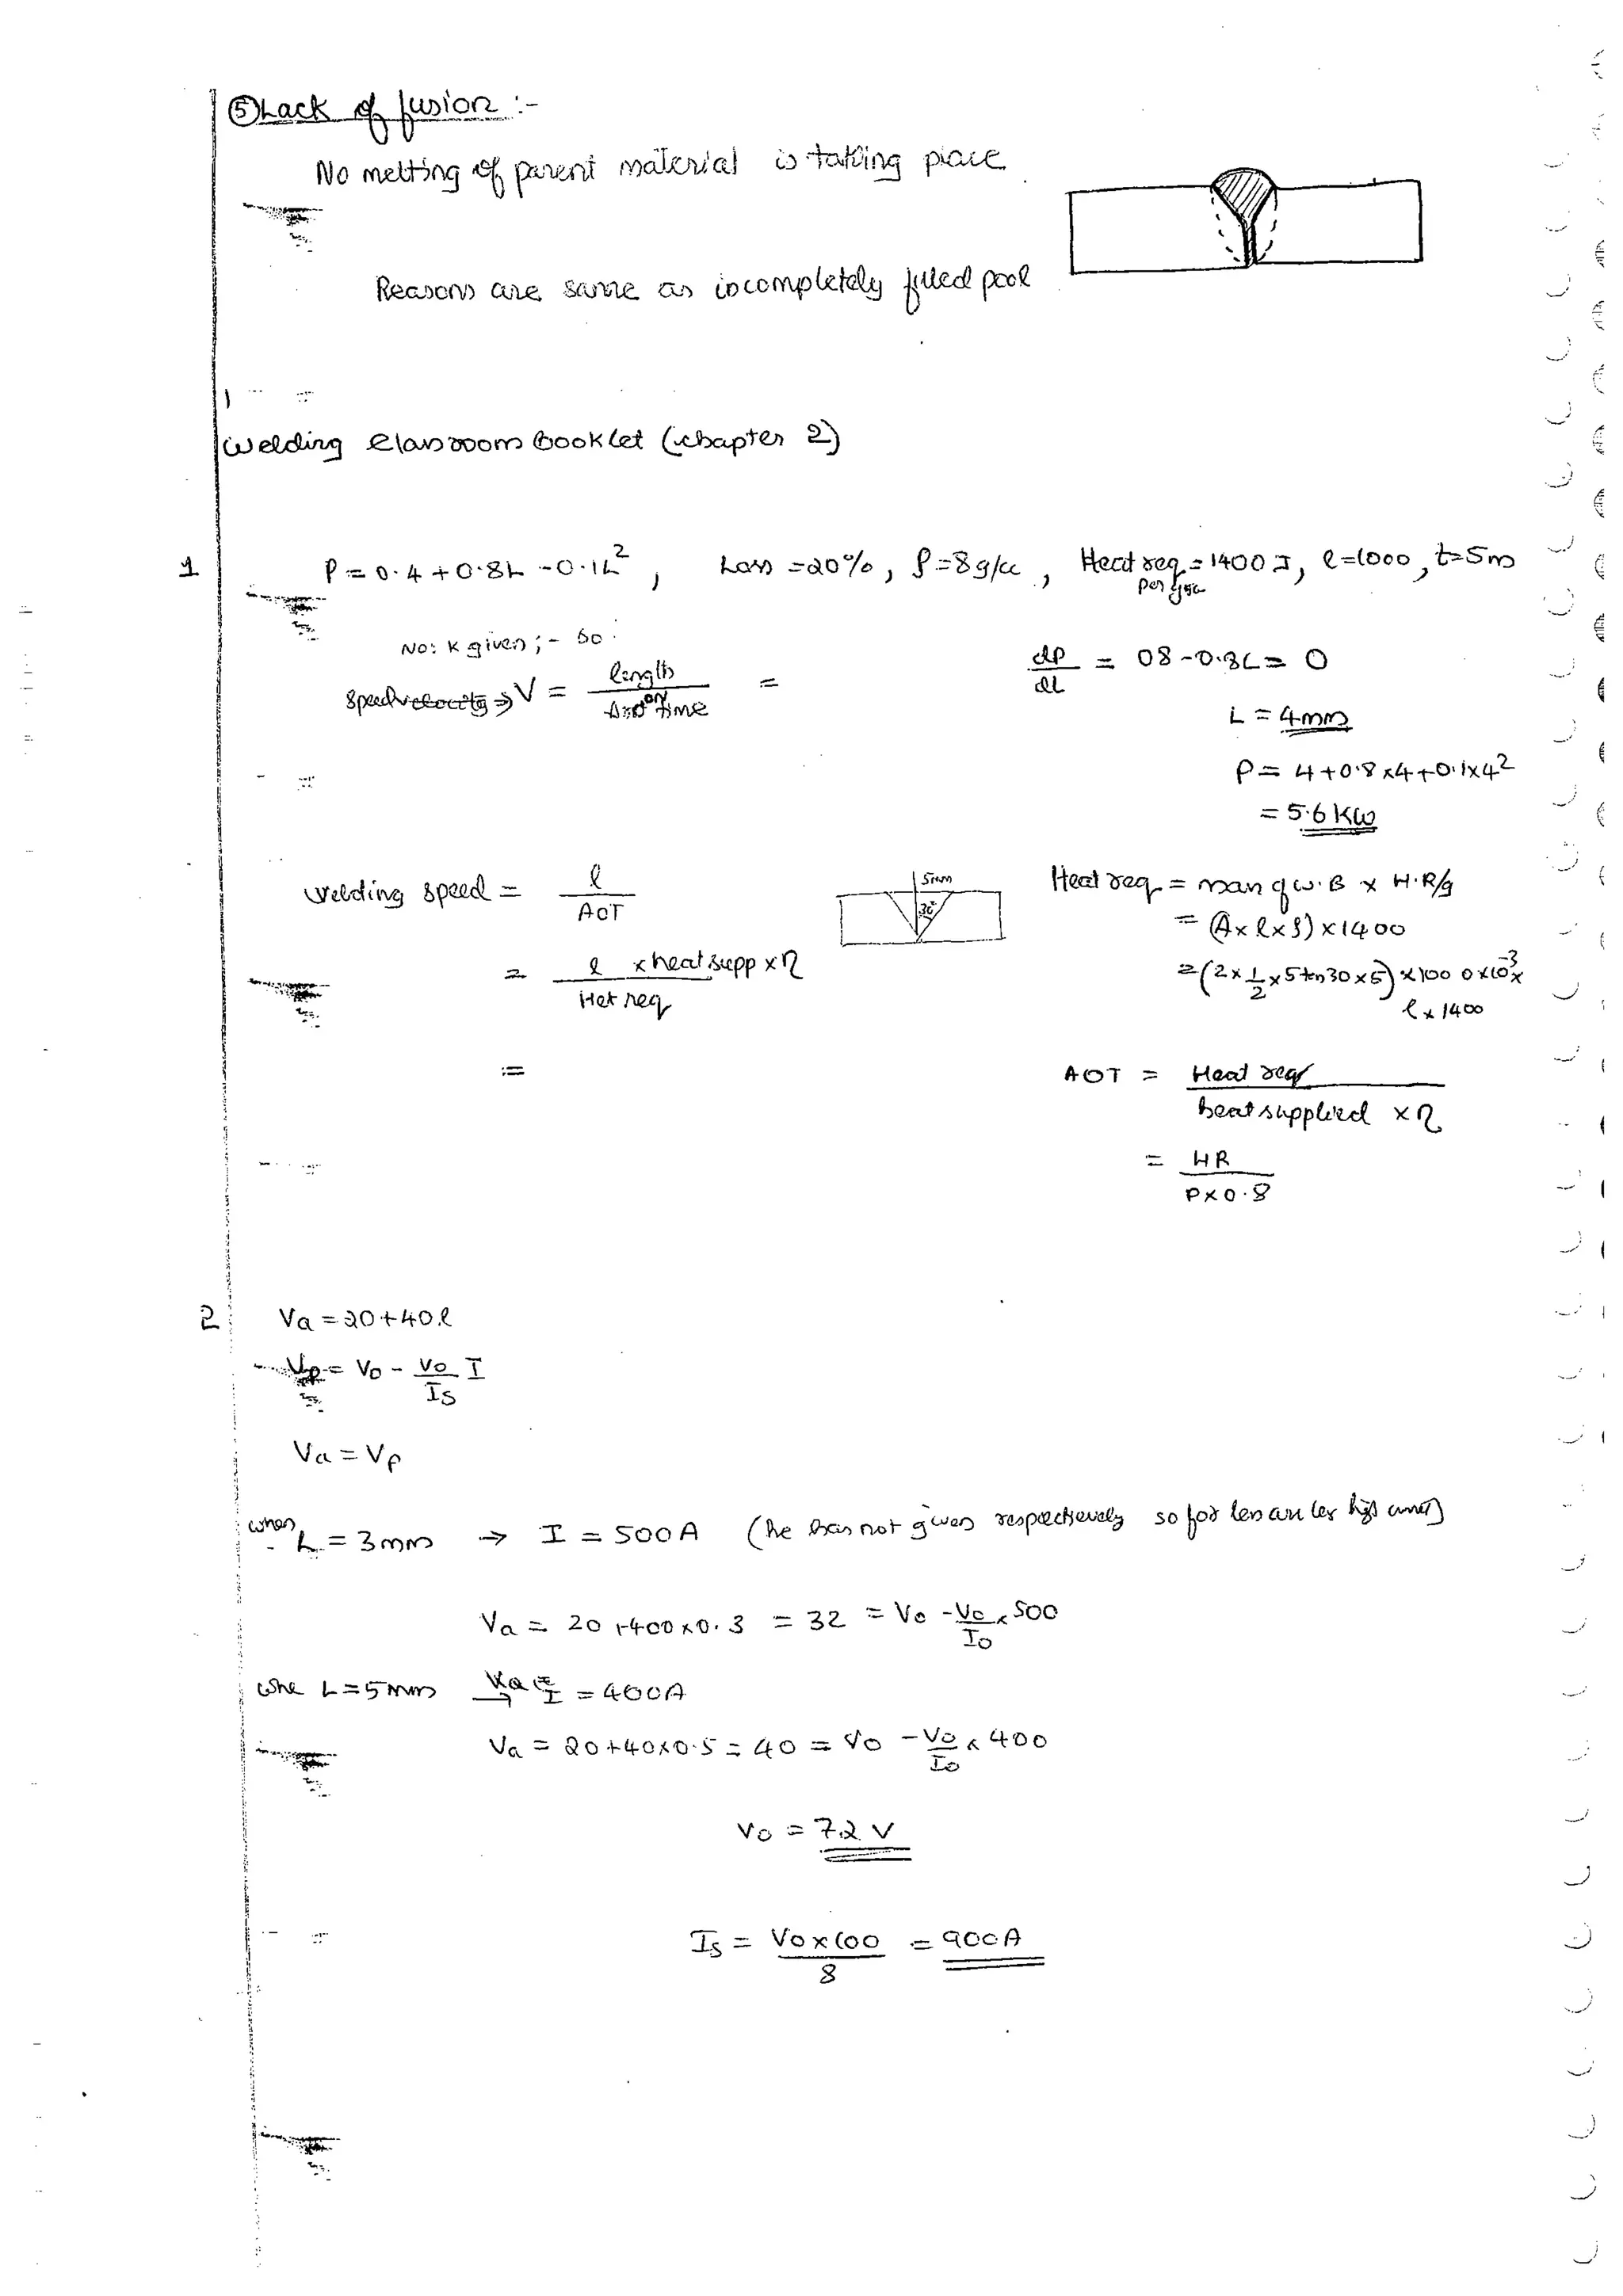 ⑤ Lack of fusion :-
No melting of parent material is taking place
Reasons are same as incompletely filled pool
Welding Classroom Booklet (chapter 2)
1 P = 0.4 + 0.8L - 0.1L², Loss = 20%, ρ = 8g/cc, Heat req = 1400 J, l = 1000, t = 5m
per
No: K given ; - so
dP/dL = 08 - 0.2L = 0
Speed velocity ⇒ V = length / Arc on time =
L = 4mm
P = 4 + 0.8 x 4 + 0.1 x 4²
= 5.6 KW
Welding speed = l / AOT
5mm
30°
Heat req = mass of W.B x H.R/g
= (A x l x ρ) x 1400
= l x heat supp x η / Het req
= (2 x 1/2 x 5 tan 30 x 5) x 1000 x 10⁻³ x
ρ x 1400
=
AOT = Heat req / heat supplied x η
= HR / P x 0.8
2 Va = 20 + 40l
Vp = Vo - Vo/Is I
Va = Vp
when L = 3mm → I = 500A (he has not given respectively so for less arc len high current)
Va = 20 + 400 x 0.3 = 32 = Vo - Vo/Io x 500
whe L = 5mm → I = 400A
Va = 20 + 40 x 0.5 = 40 = Vo - Vo/Io x 400
Vo = 72 V
Is = Vo x 100 / 8 = 900A